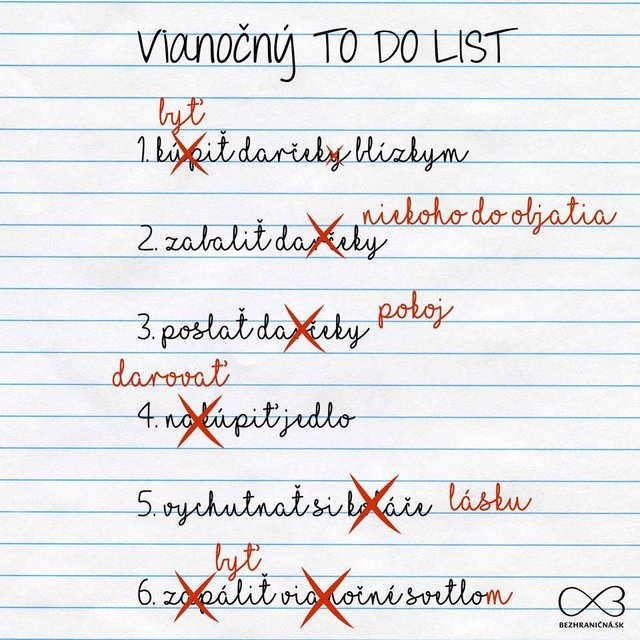 Vianočný TO DO LIST
byť
1. kúpiť darčeky blízkym
niekoho do objatia
2. zabaliť darčeky
pokoj
3. poslať darčeky
darovať
4. nakúpiť jedlo
5. vychutnať si koláče lásku
byť
6. zapáliť vianočné svetlom
BEZHRANIČNÁ.SK